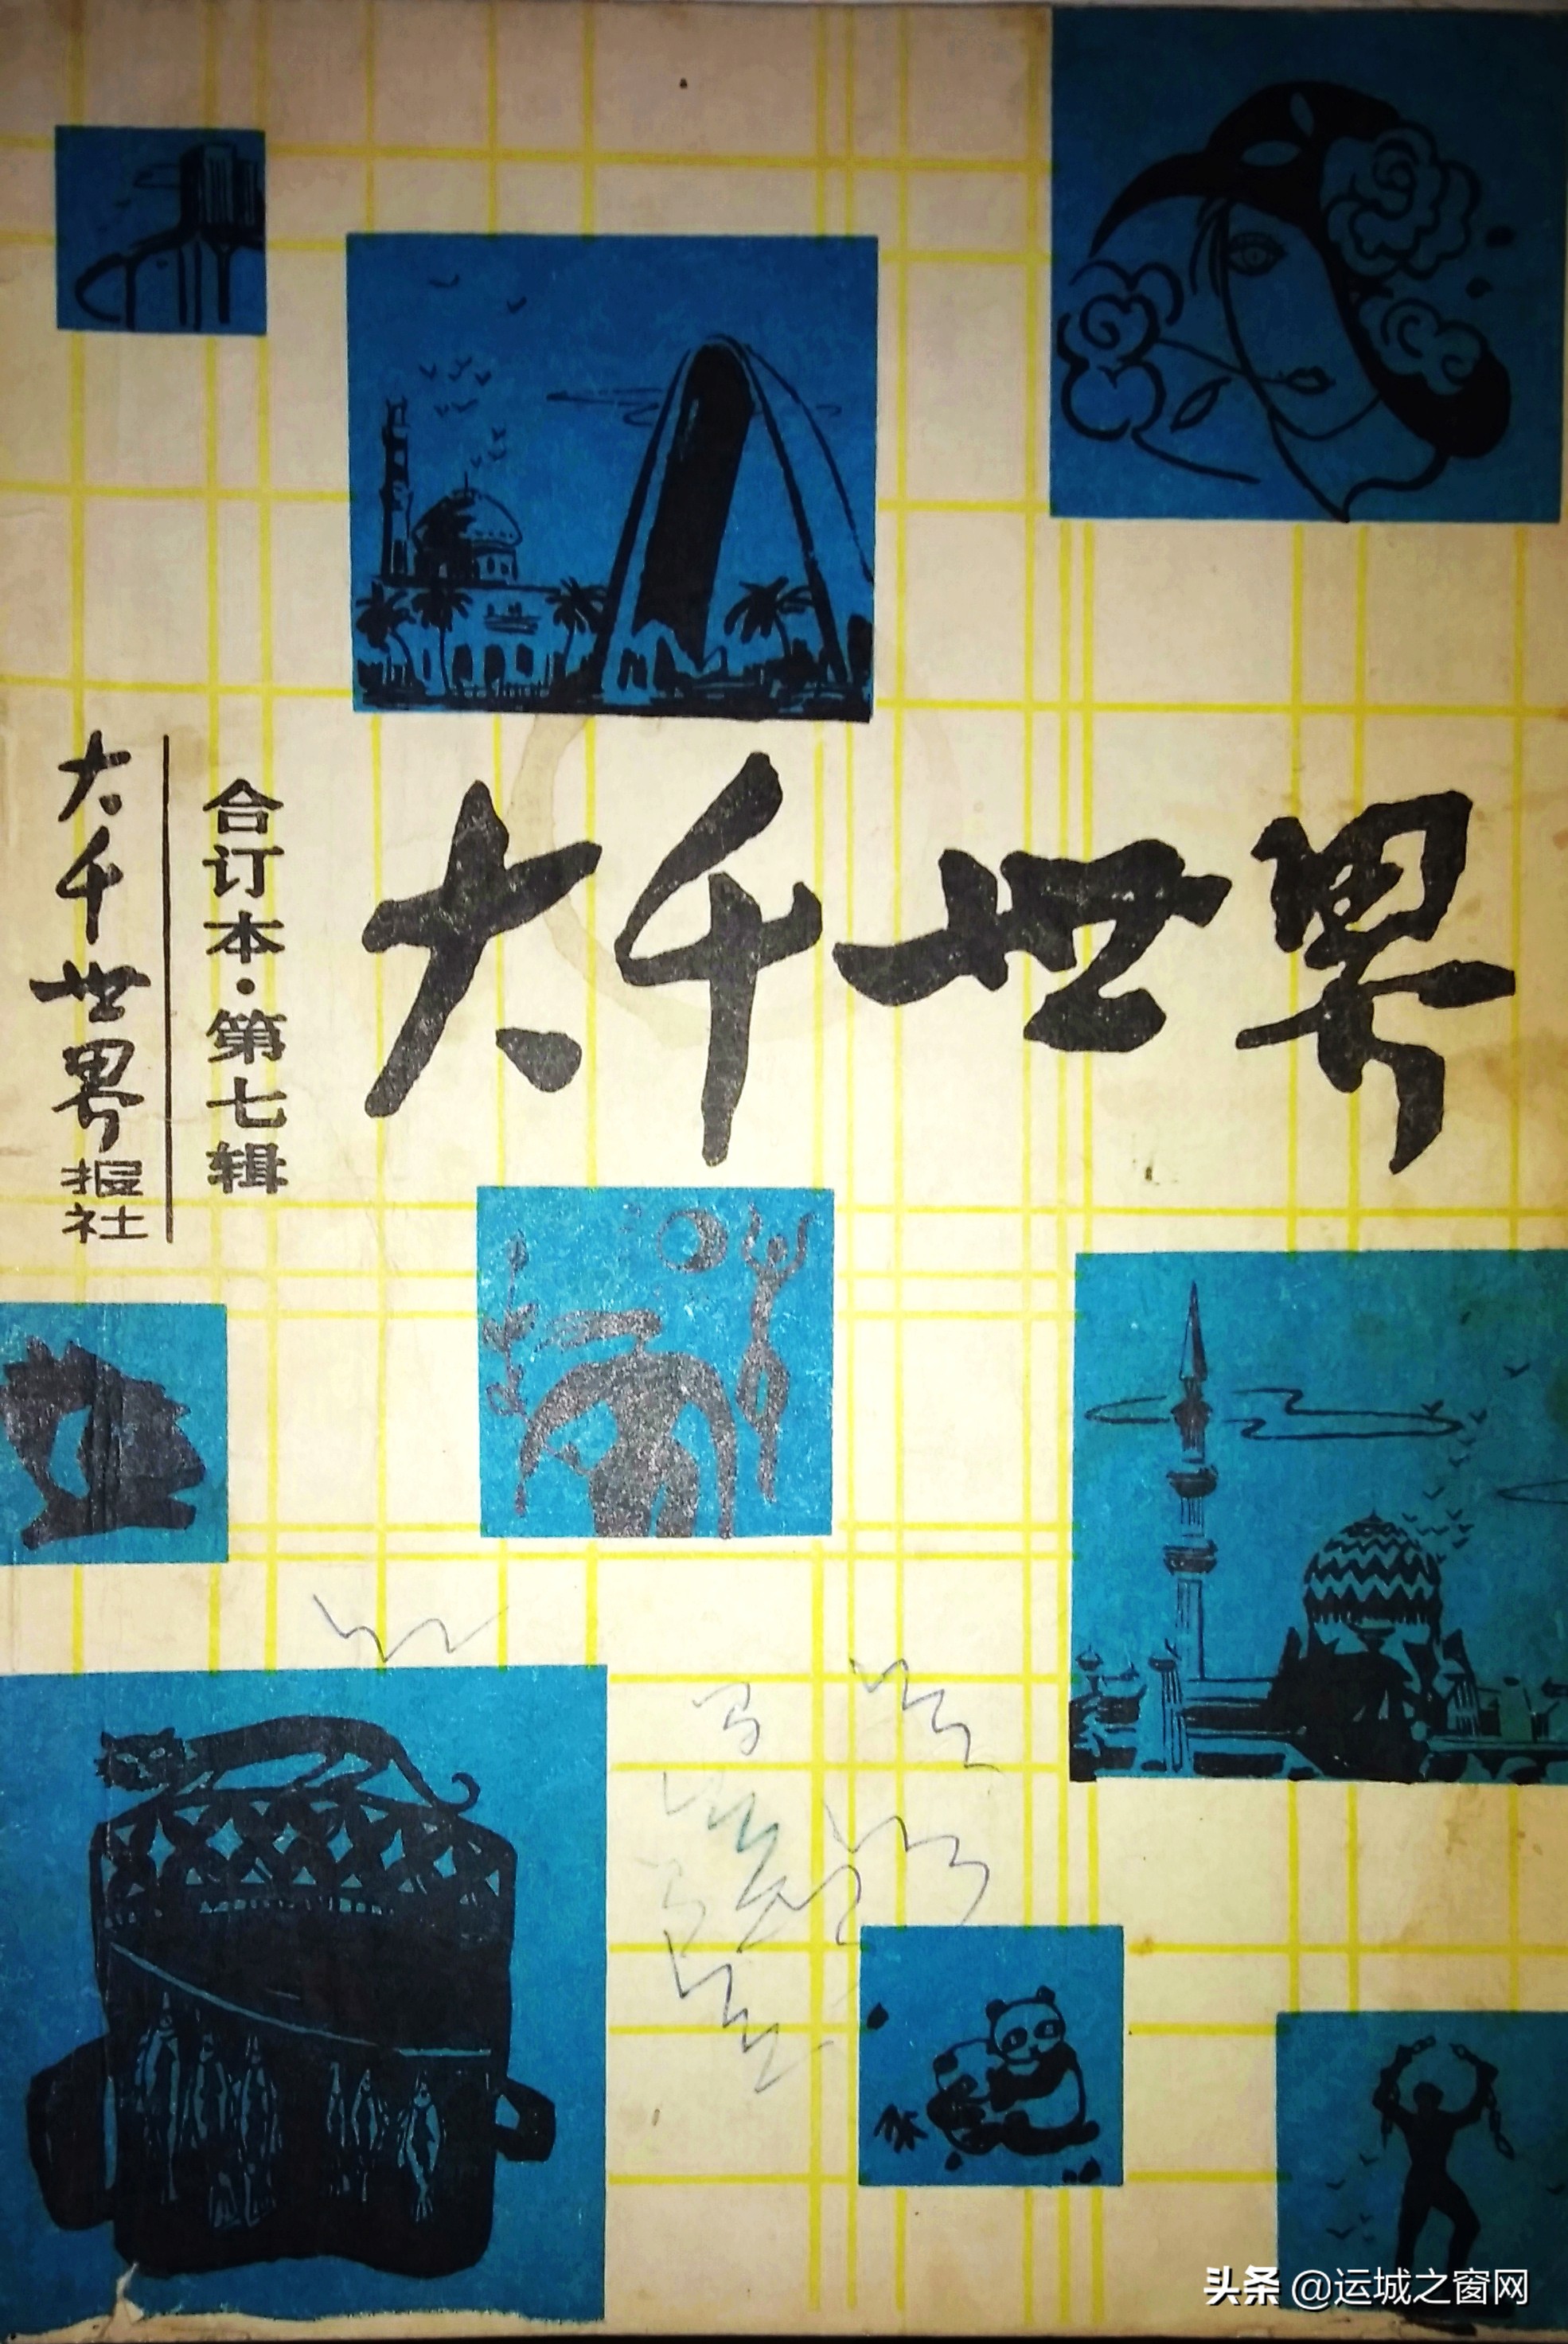 大千世界
合订本·第七辑
大千世界报社
头条 @运城之窗网